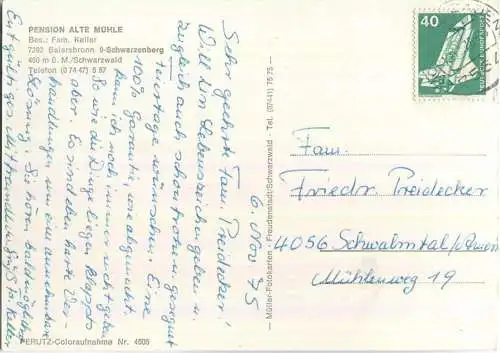 PENSION ALTE MÜHLE
Bes.: Fam. Keller
7292 Baiersbronn 9-Schwarzenberg
460 m ü. M./Schwarzwald
Telefon (0 74 47) 5 67
Sehr geehrte Fam. Preidecker!
Will Ihn Lebenszeichen geben u.
zugleich auch schon frohen, gesegnete
Feiertage wünschen. Eine
100% Garantie, wie abgemacht,
kann ich noch immer nicht geben.
So wie die Dinge liegen klappts
aber. Es sind eben harte Ver-
handlungen um eine annehmbare
Lösung. Sie hören baldmöglichst
Endgültiges. Mit freundlichem Gruß Fa. Keller
PERUTZ-Coloraufnahme Nr. 4605
6. Nov 75
Müller-Fotokarten · Freudenstadt/Schwarzwald · Tel. (07441) 75 75
40
DEUTSCHE BUNDESPOST
Fam.
Friedr. Preidecker
4056 Schwalmtal
Mühlenweg 19